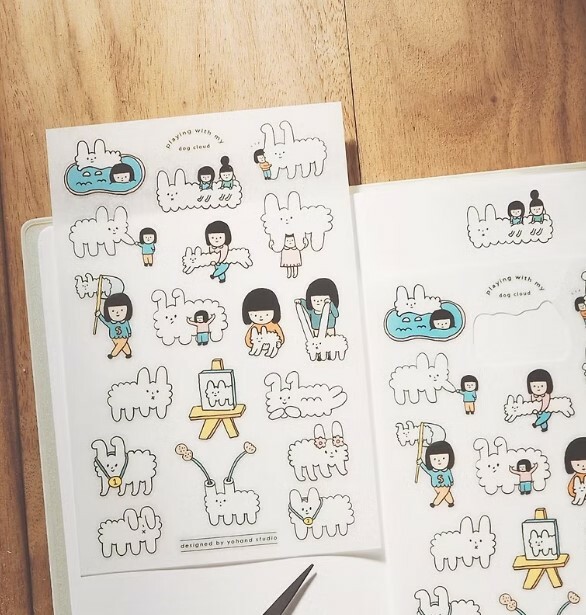 playing with my
dog cloud
S
1
designed by yohand studio
playing with my
dog cloud
S